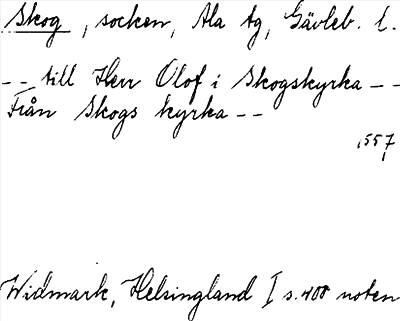 Skog, socken, Ala tg, Gävleb. l.
-- till Herr Olof i Skogskyrka --
Från Skogs kyrka --
1557
Widmark, Helsingland I s. 400 noten